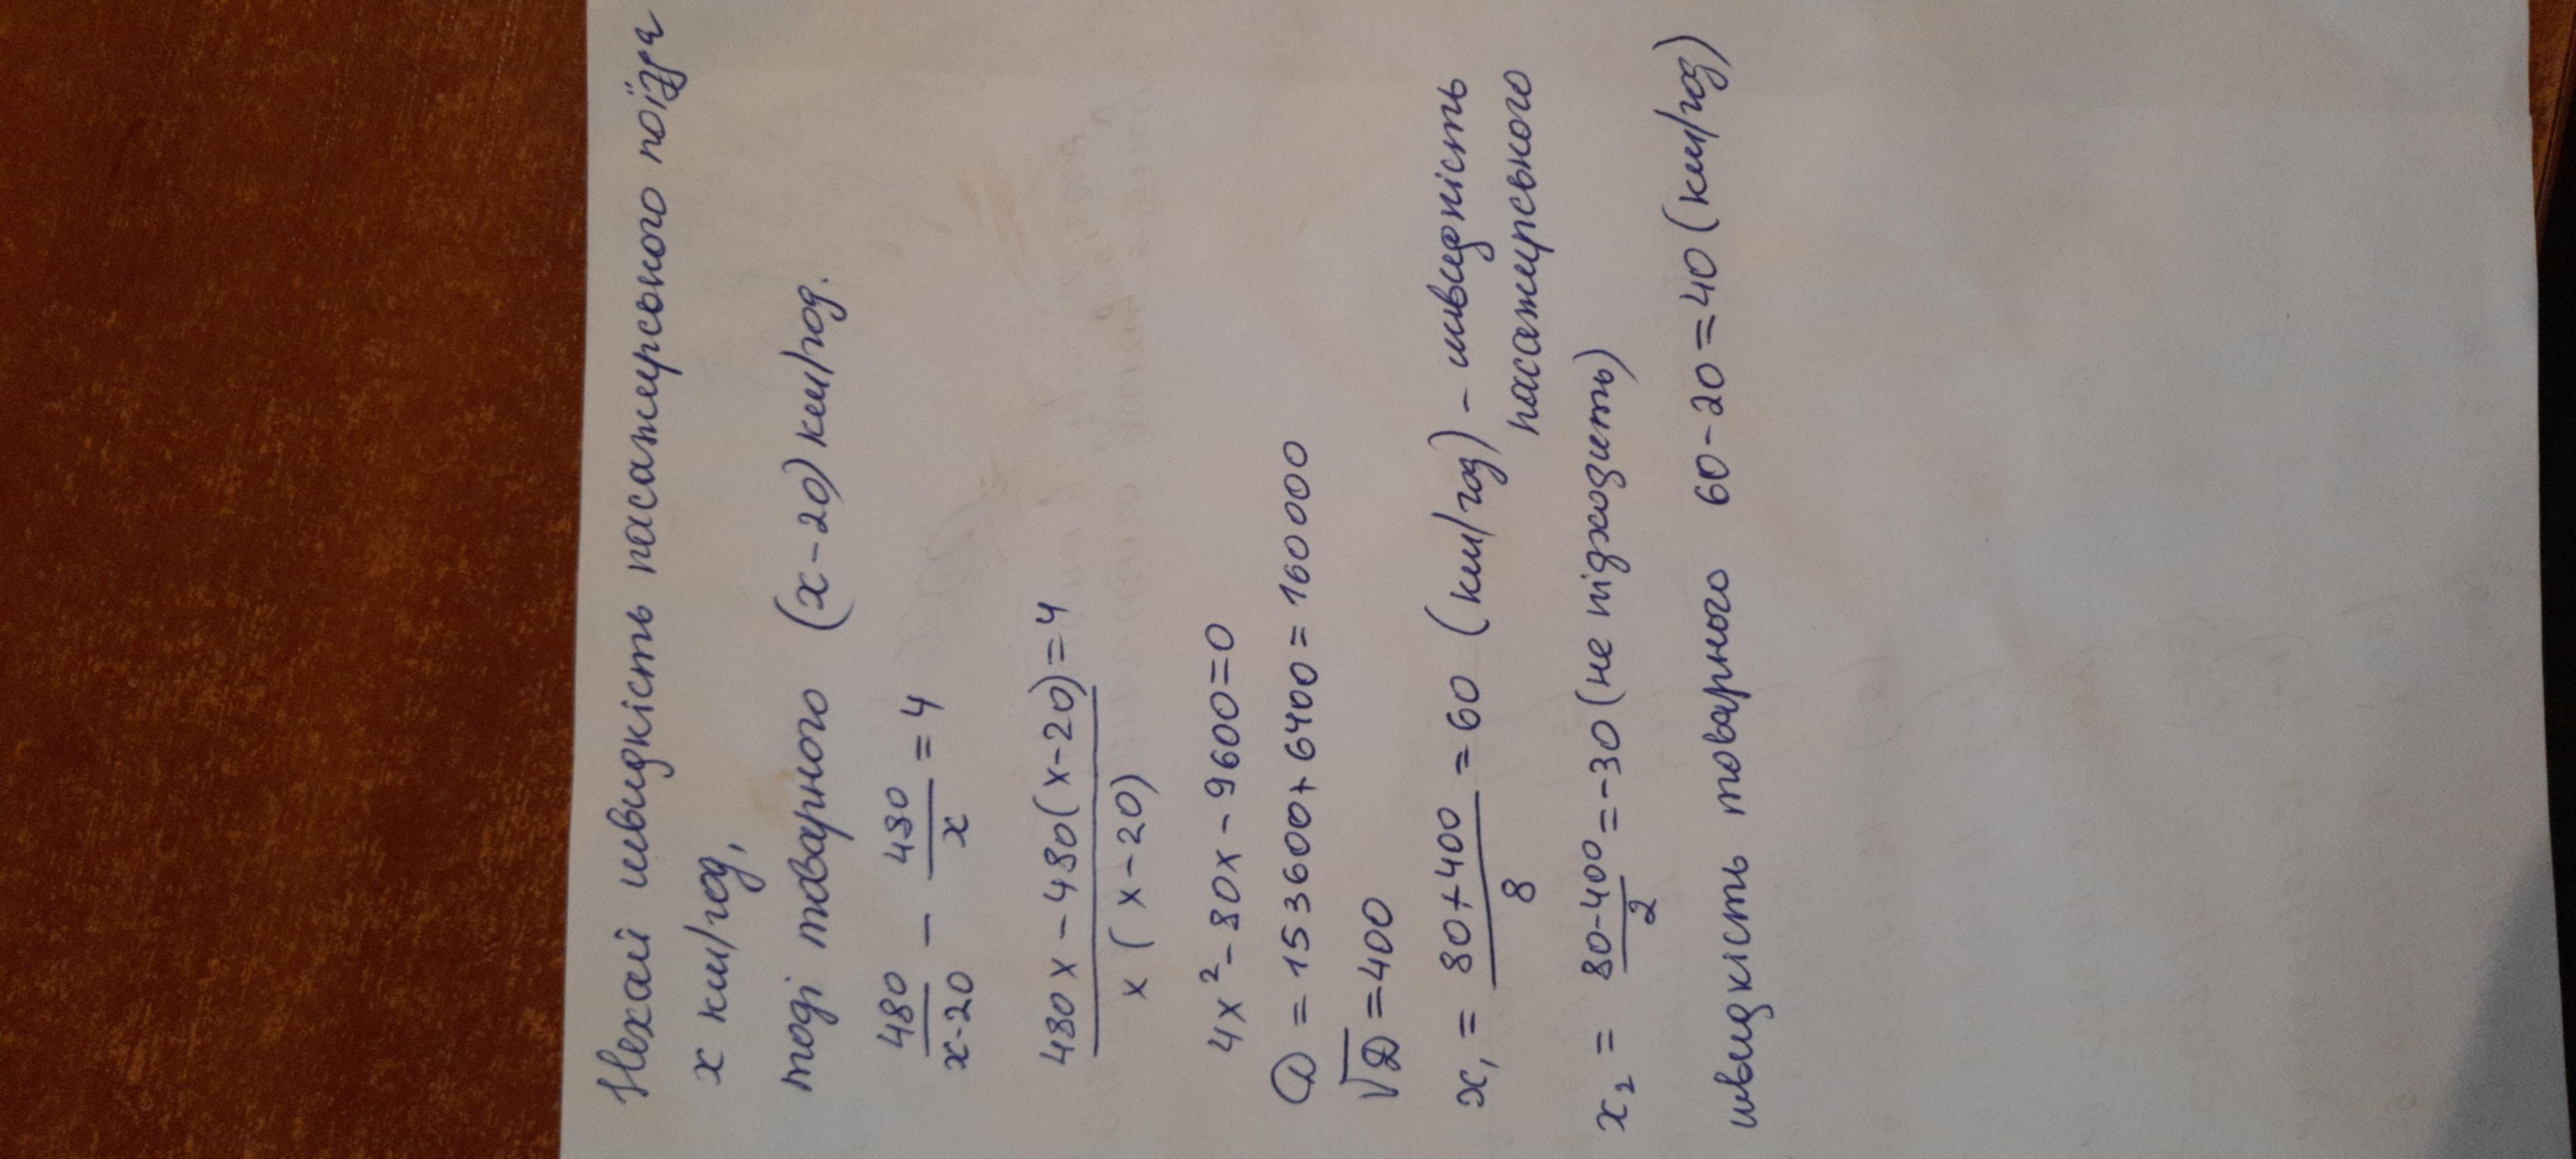 Нехай швидкість пасажирського поїзда
x км/год,
тоді товарного (x-20) км/год.
480/x-20 - 480/x = 4
480x-480(x-20)/x(x-20) = 4
4x²-80x-9600=0
D = 153600+6400=160000
√D=400
x₁ = 80+400/8 = 60 (км/год) - швидкість
пасажирського
x₂ = 80-400/2 = -30 (не підходить)
швидкість товарного 60-20=40 (км/год)